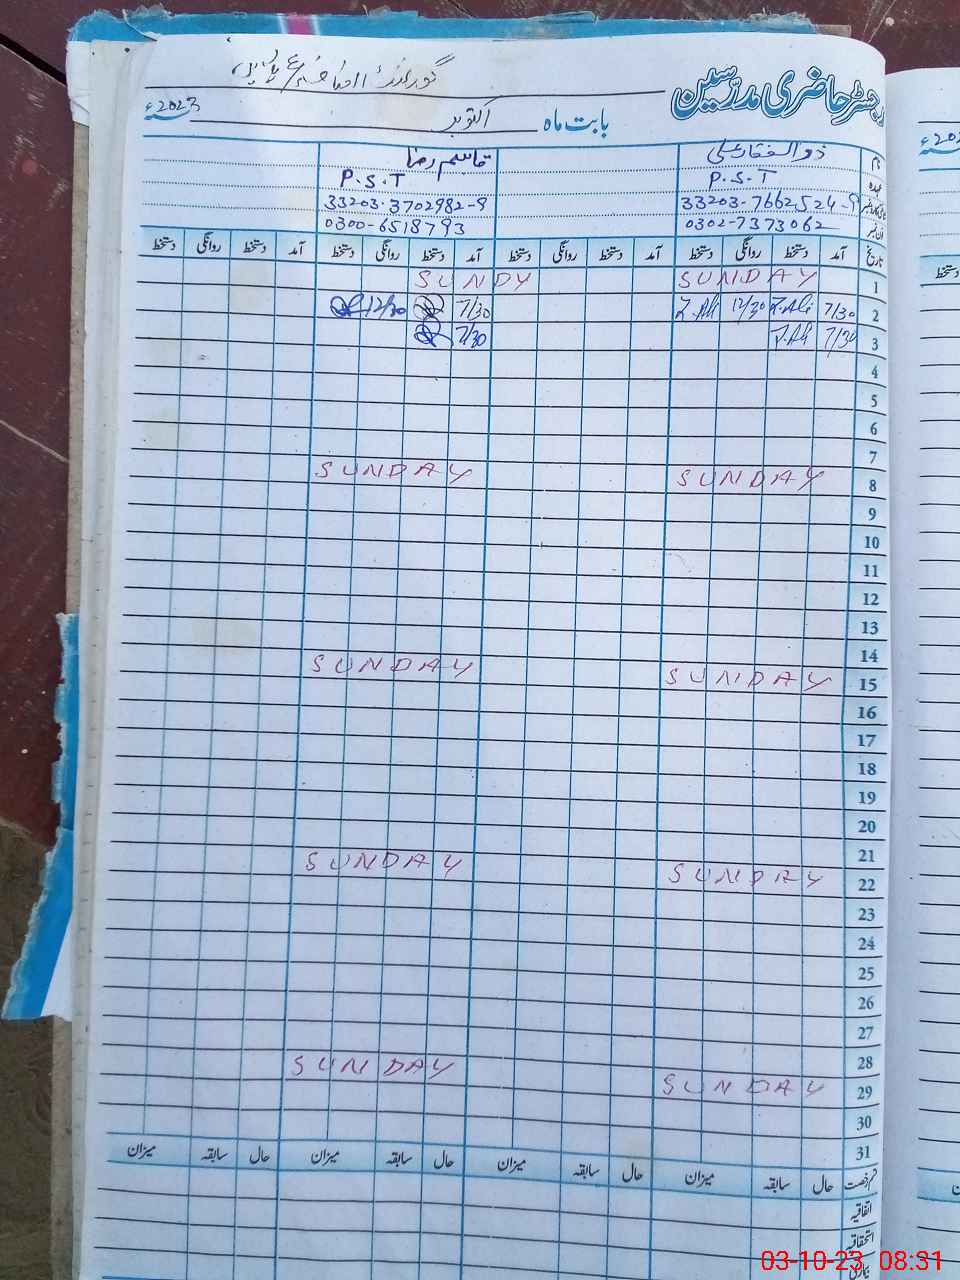 رجسٹر حاضری مدرسین
بابت ماہ اکتوبر 2023ء
نام ذوالفقار علی قاسم رضا
عہدہ P.S.T P.S.T
33203-7662524-9 33203-3702982-9
فون نمبر 0302-7373062 0300-6518793
تاریخ آمد دستخط روانگی دستخط آمد دستخط روانگی دستخط آمد دستخط روانگی دستخط آمد دستخط روانگی دستخط
1 SUNDAY SUNDY
2 7/30 Z.Ali 12/30 Z.Ali 7/30 12/30
3 7/30 Z.Ali 7/30
4
5
6
7
8 SUNDAY SUNDAY
9
10
11
12
13
14
15 SUNDAY SUNDAY
16
17
18
19
20
21
22 SUNDAY SUNDAY
23
24
25
26
27
28
29 SUNDAY SUNDAY
30
31
قسم رخصت حال سابقہ میزان حال سابقہ میزان حال سابقہ میزان حال سابقہ میزان
اتفاقیہ
استحقاقیہ
03-10-23 08:31